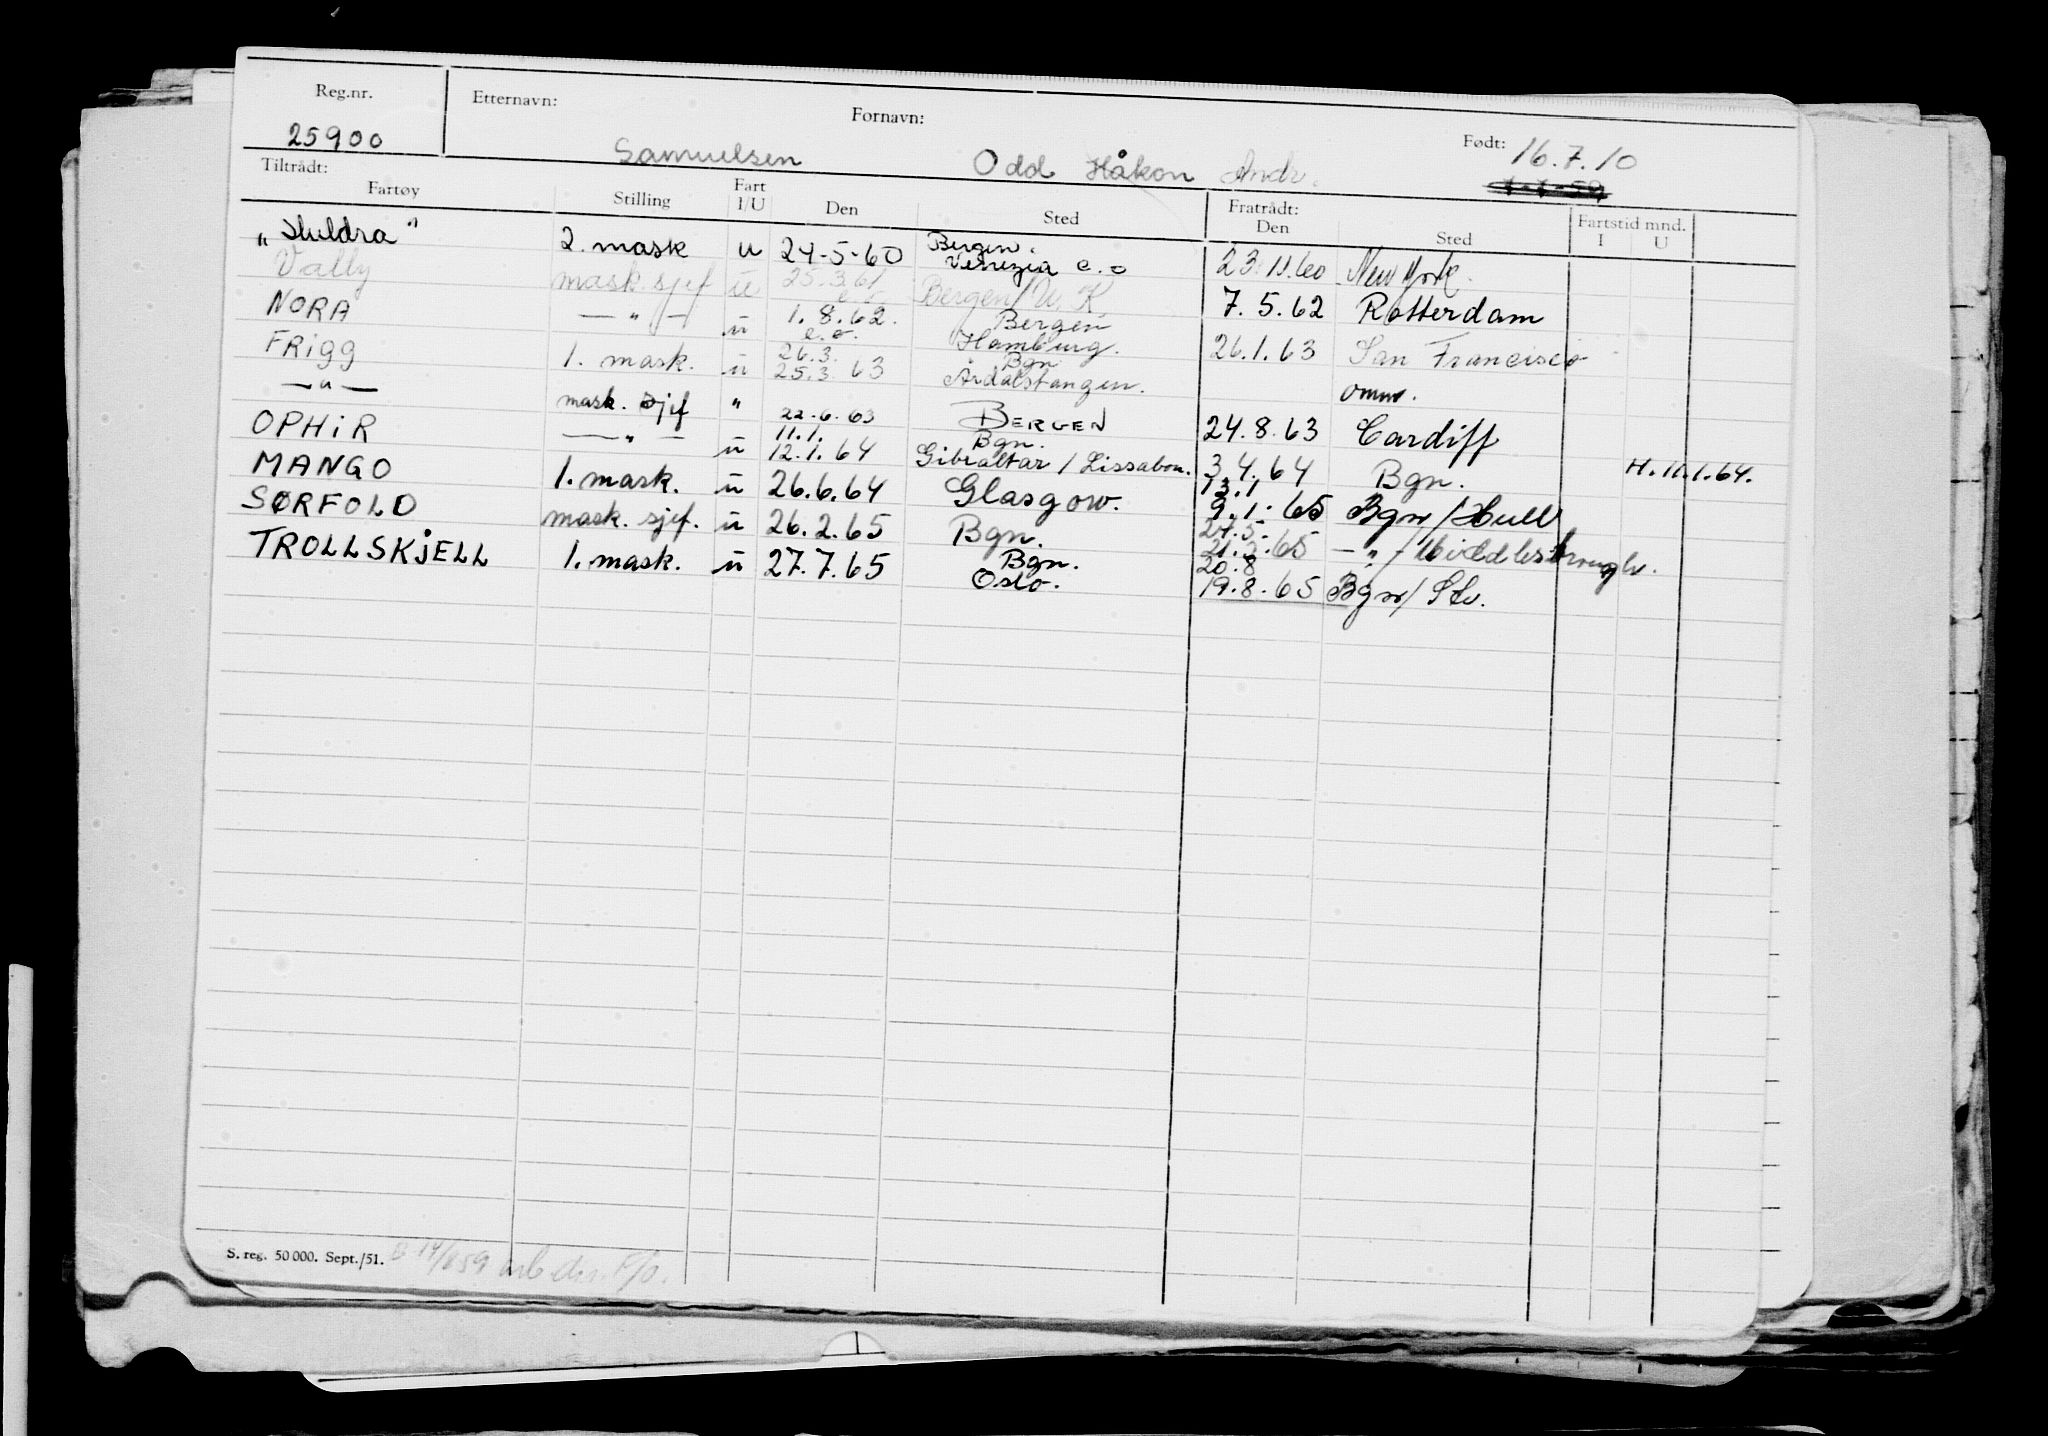 Reg.nr. Etternavn: Fornavn: Født:
25900 Samuelsen Odd Håkon Andr. 16.7.10
Tiltrådt: Fratrådt: Fartstid mnd.
Fartøy Stilling Fart I/U Den Sted Den Sted I U
"Huldra" 2. mask u 24-5-60 Bergen. Venezia e.o 23.11.60 New York.
Vally mask. sjef u 25.3.61 e.o. Bergen/U.K 7.5.62 Rotterdam
NORA — " — u 1.8.62. e.o. Bergen Hamburg. 26.1.63 San Francisco
FRigg 1. mask. u 26.3. 25.3.63 Bgn Årdalstangen. omm.
— " — mask. sjef " 22.6.63 BERGEN 24.8.63 Cardiff
OPHiR — " — u 11.1. 12.1.64 Bgn. Gibraltar / Lissabon. 3.4.64 Bgn. H.11.1.64.
MANGO 1. mask. u 26.6.64 Glasgow. 13.1 9.1.65 Bgn/Hull
SØRFOLD mask. sjef. u 26.2.65 Bgn. 24.5. 21.5.65 — " — Middlesbrough.
TROLLSKjELL 1. mask. u 27.7.65 Bgn. Oslo. 20.8 19.8.65 Bgn/ Stv.
S. reg. 50 000. Sept./51.
1